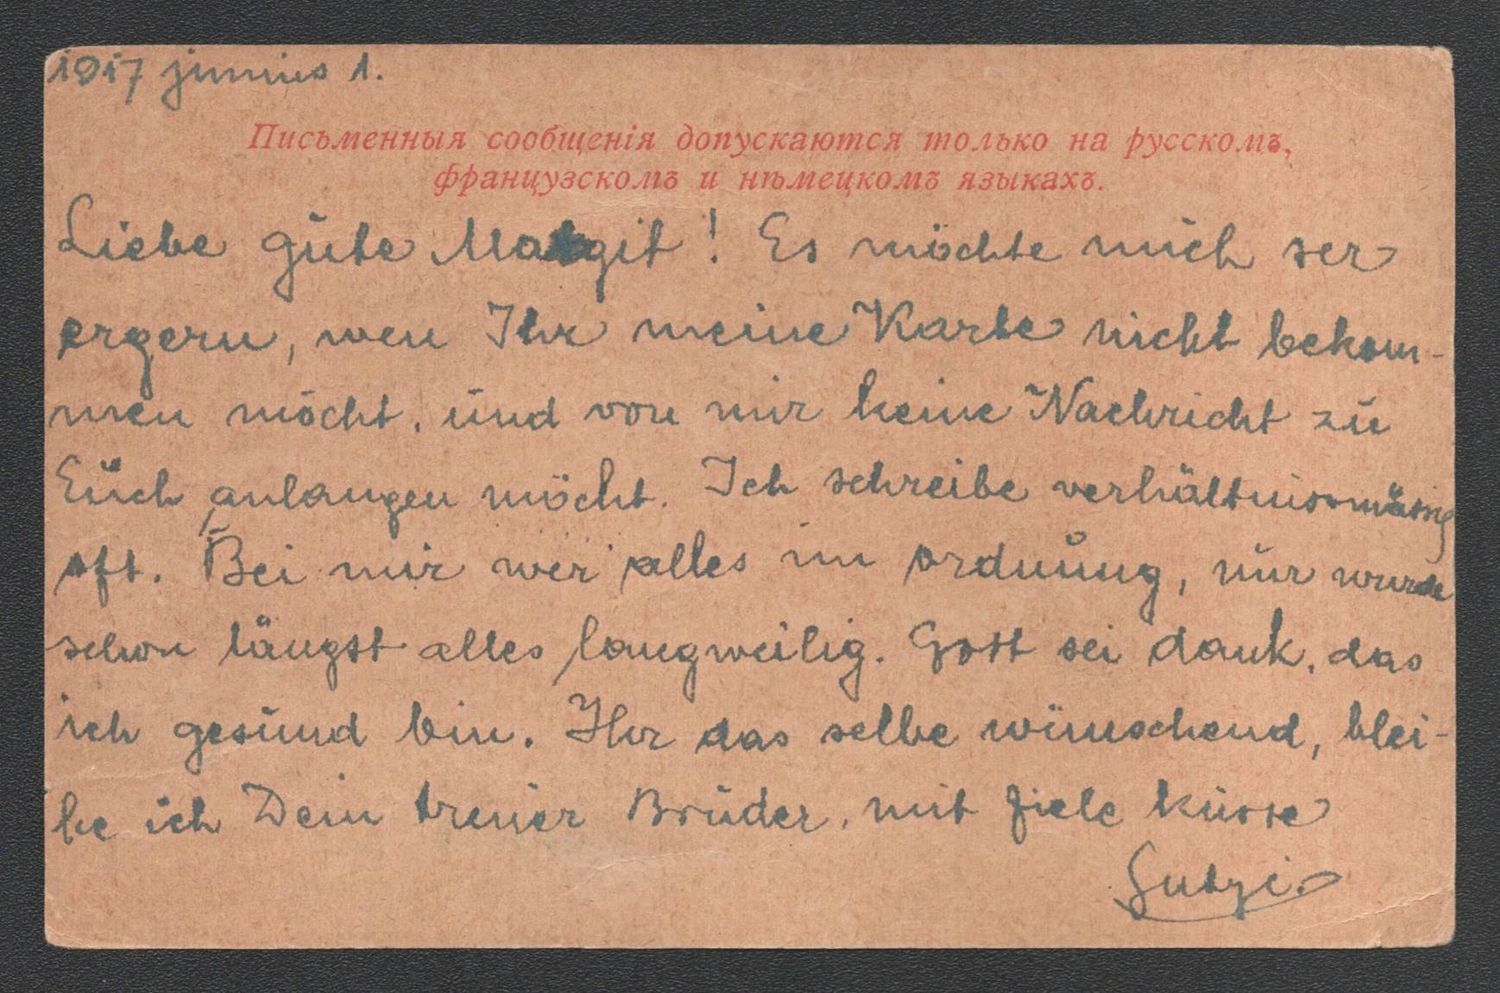 1917 junius 1.
Письменныя сообщенія допускаются только на русскомъ,
французскомъ и нѣмецкомъ языкахъ.
Liebe gute Margit! Es möchte mich ser
ergern, wen Ihr meine Karte nicht bekom-
men möcht, und von mir keine Nachricht zu
Euch anlangen möcht. Ich schreibe verhältnissmässig
oft. Bei mir wer alles im ordnung, nur wurde
schon längst alles langweilig. Gott sei dank, das
ich gesund bin. Ihr das selbe wünschend, blei-
be ich Dein treuer Bruder, mit fiele küsse